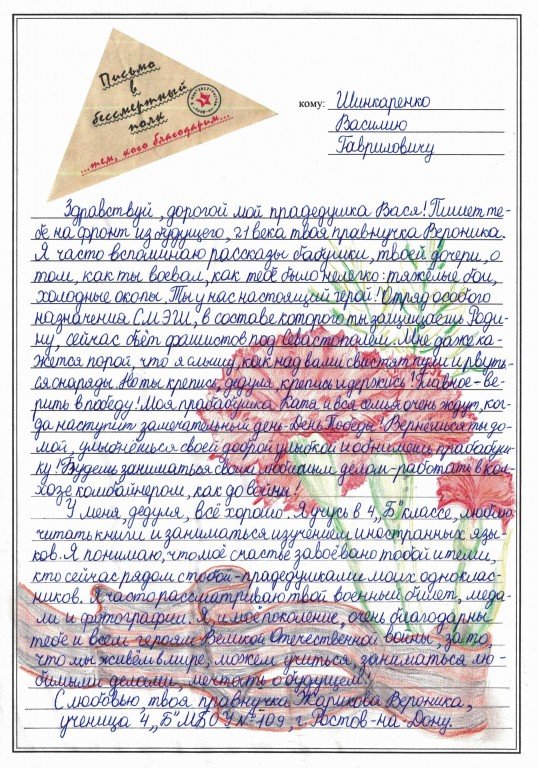 Письмо
в
бессмертный
полк
...тем, кого благодарим...
кому: Шинкаренко
Василию
Гавриловичу
Здравствуй, дорогой мой прадедушка Вася! Пишет те-
бе на фронт из будущего, 21 века твоя правнучка Вероника.
Я часто вспоминаю рассказы бабушки, твоей дочери, о
том, как ты воевал, как тебе было нелегко: тяжёлые бои,
холодные окопы. Ты у нас настоящий герой! Отряд особого
назначения СМЭГШ, в составе которого ты защищаешь Роди-
ну, сейчас бьёт фашистов под Севастополем. Мне даже ка-
жется порой, что я слышу, как над вами свистят пули и рвуть-
ся снаряды. Но ты крепись, дедуля, крепись и держись! Главное - ве-
рить в победу! Моя прабабушка Катя и вся семья очень ждут, ког-
да наступит замечательный день - День Победы! Вернёшься ты до-
мой, улыбнёшься своей доброй улыбкой и обнимешь прабабуш-
ку! Будешь заниматься своим любимым делом - работать в кол-
хозе комбайнером, как до войны!
У меня, дедуля, всё хорошо. Я учусь в 4 „Б" классе, люблю
читать книги и заниматься изучением иностранных язы-
ков. Я понимаю, что моё счастье завоёвано тобой и теми,
кто сейчас рядом с тобой - прадедушками моих однокласс-
ников. Я часто рассматриваю твой военный билет, меда-
ли и фотографии. Я, и моё поколение, очень благодарны
тебе и всем героям Великой Отечественной войны за то,
что мы живём в мире, можем учиться, заниматься лю-
бимыми делами, мечтать о будущем!
С любовью, твоя правнучка Жарикова Вероника,
ученица 4 „Б" МБОУ № 109, г. Ростов-на-Дону.